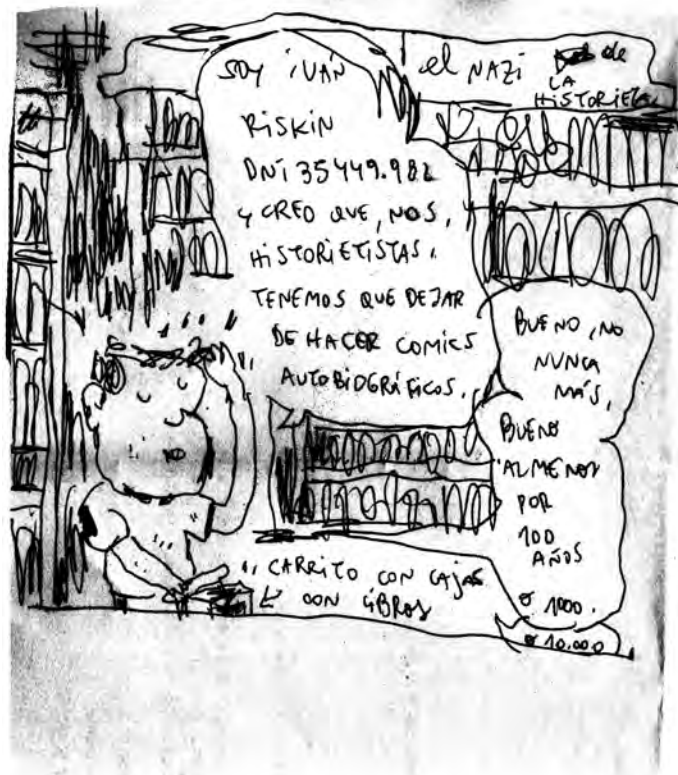 el NAZI de
LA
HISTORIETA
SOY iVÁN
RiSKiN
DNi 35449.982
Y CREO QUE, NOS,
HiSTORiETISTAS,
TENEMOS QUE DEJAR
DE HACER COMiCS
AUTOBIOGRÁFiCOS,
BUENO, NO
NUNCA
MÁS,
BUENO
ALMENOS
POR
100
AÑOS
o 1000.
o 10.000
CARRiTO CON CAJAS
CON LiBROS